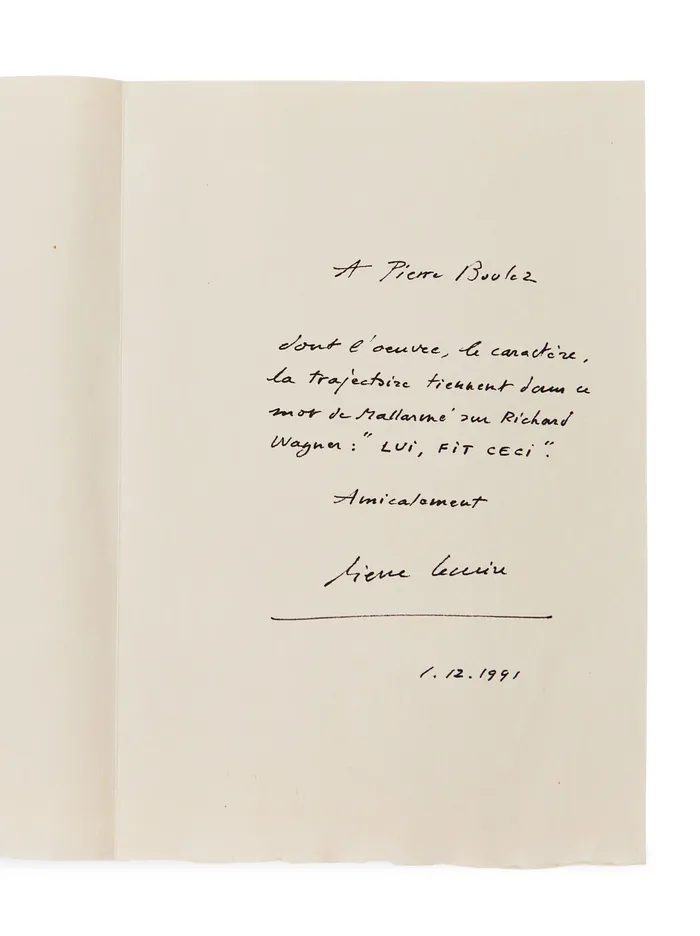 A Pierre Boulez
dont l'oeuvre, le caractère,
la trajectoire tiennent dans ce
mot de Mallarmé sur Richard
Wagner : " LUI, FIT CECI ".
Amicalement
Pierre
1.12.1991